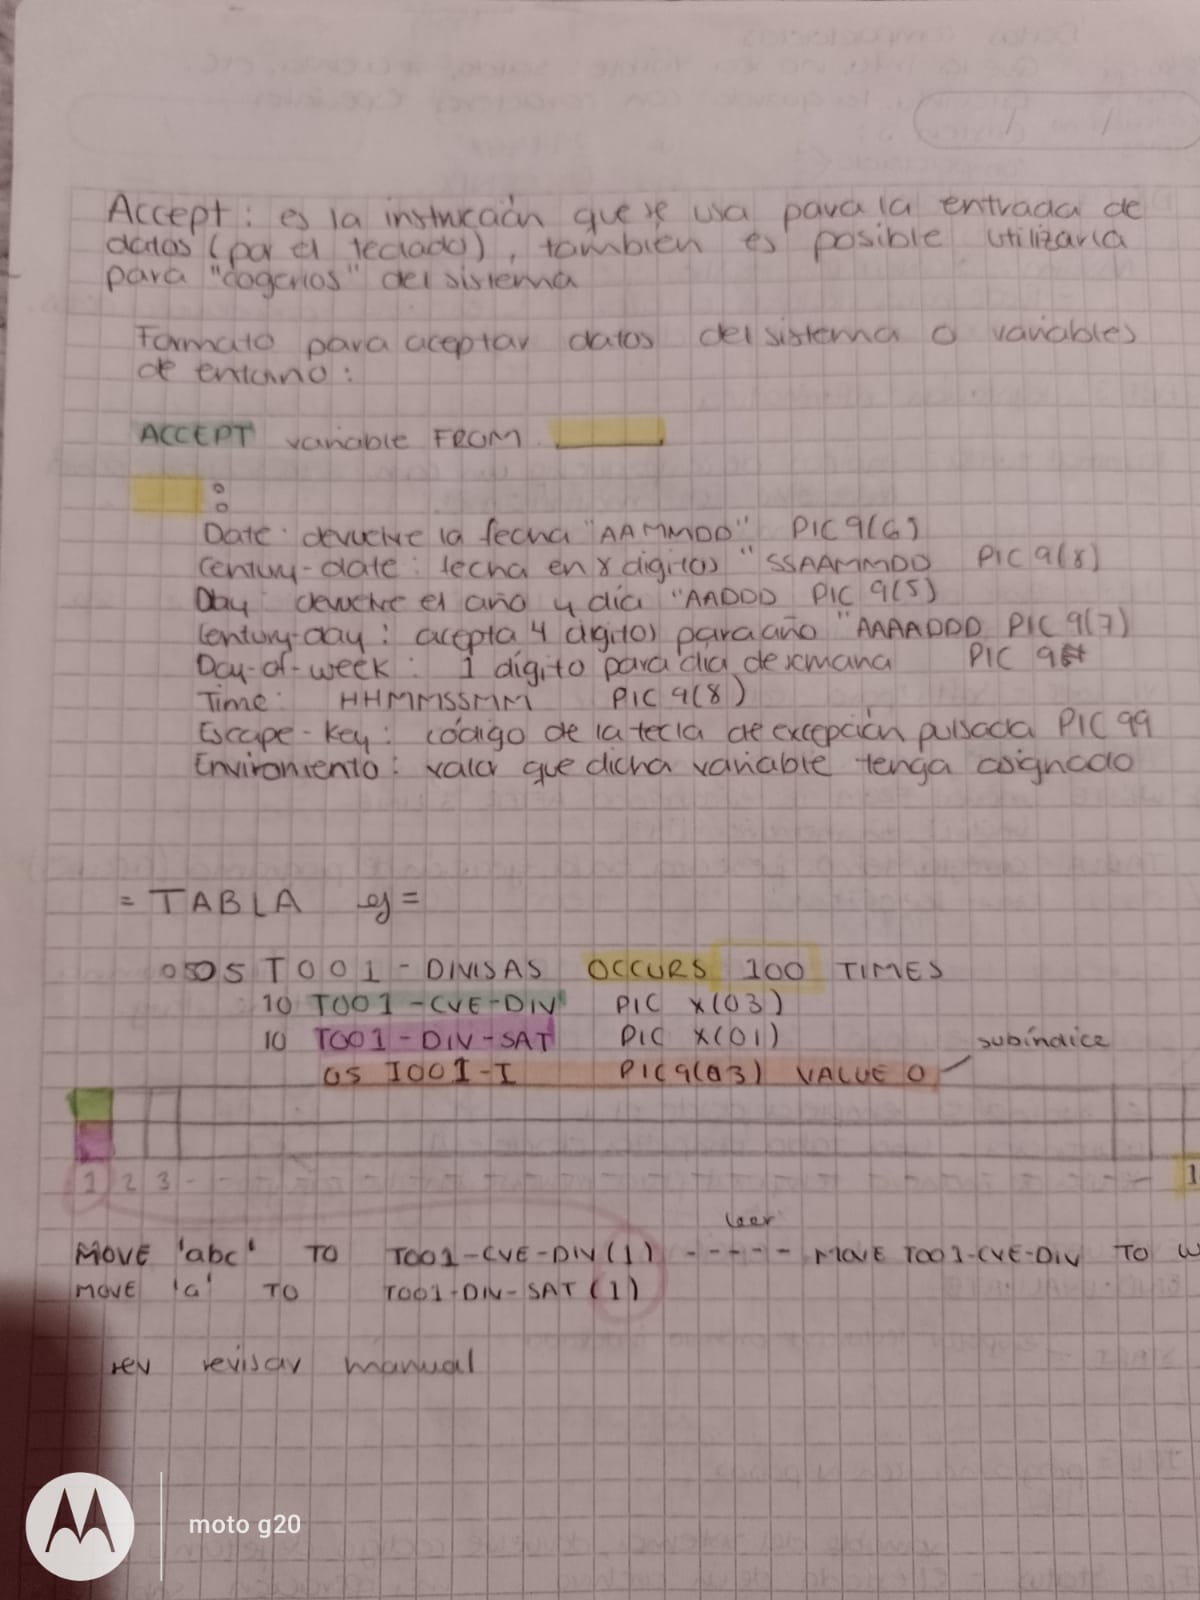 Accept: es la instrucción que se usa para la entrada de
datos (por el teclado), también es posible utilizarla
para "cogerlos" del sistema
Formato para aceptar datos del sistema o variables
de entorno:
ACCEPT variable FROM
:
Date: devuelve la fecha "AAMMDD" PIC 9(6)
Century-date: fecha en 8 digitos "SSAAMMDD PIC 9(8)
Day: devuelve el año y día "AADDD PIC 9(5)
Century-day: acepta 4 digitos para año "AAAADDD PIC 9(7)
Day-of-week: 1 dígito para dia de semana PIC 9
Time: HHMMSSMM PIC 9(8)
Escape-Key: código de la tecla de excepción pulsada PIC 99
Enviromento: valor que dicha variable tenga asignado
= TABLA ej =
05 T001-DIVISAS OCCURS 100 TIMES
10 T001-CVE-DIV PIC X(03)
10 T001-DIV-SAT PIC X(01)
subíndice
05 I001-I PIC 9(03) VALUE 0
1 2 3 - - 1
leer
MOVE 'abc' TO T001-CVE-DIV(1) - - - - - MOVE T001-CVE-DIV TO W
MOVE 'a' TO T001-DIV-SAT(1)
rev revisar manual
moto g20